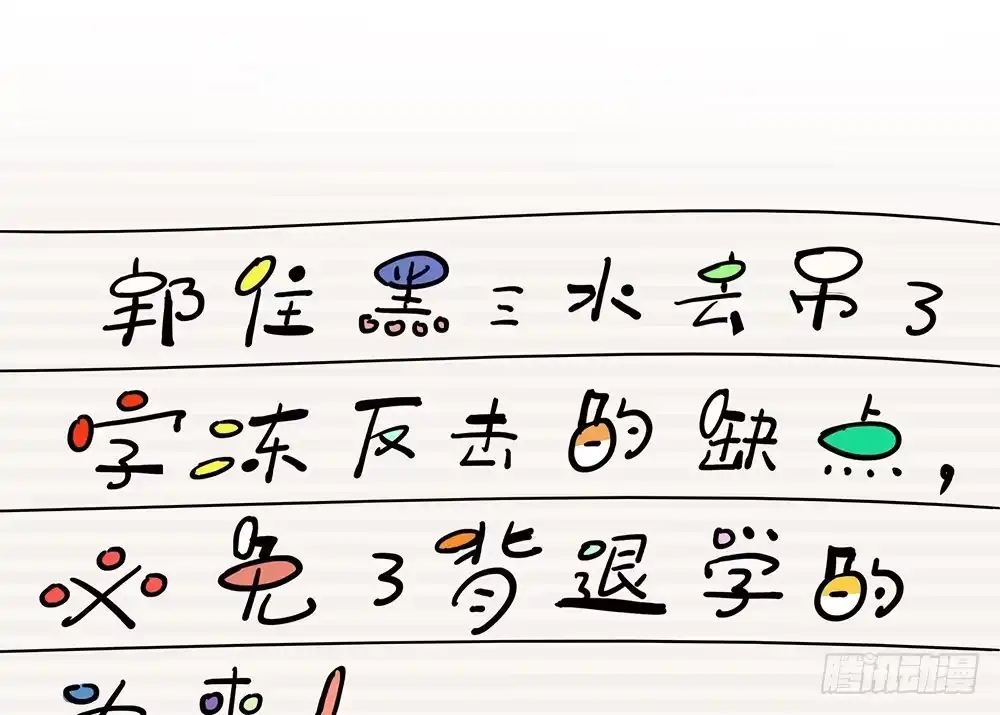 郭住黑三水去吊了
字冻反击的缺点,
※免了背退学的
腾讯动漫